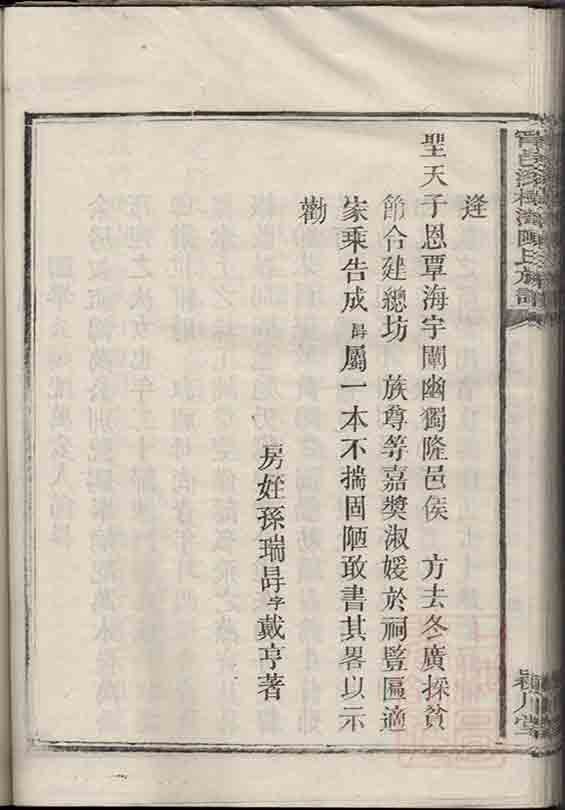 逢
聖天子恩覃海宇闡幽獨隆邑侯　方去冬廣採貧
節合建總坊　族尊等嘉奬淑媛於祠豎匾適
家乘告成㝵屬一本不揣固陋敢書其畧以示
勸
房姪孫瑞㝵字戴亨著
陳氏族譜
穎川堂